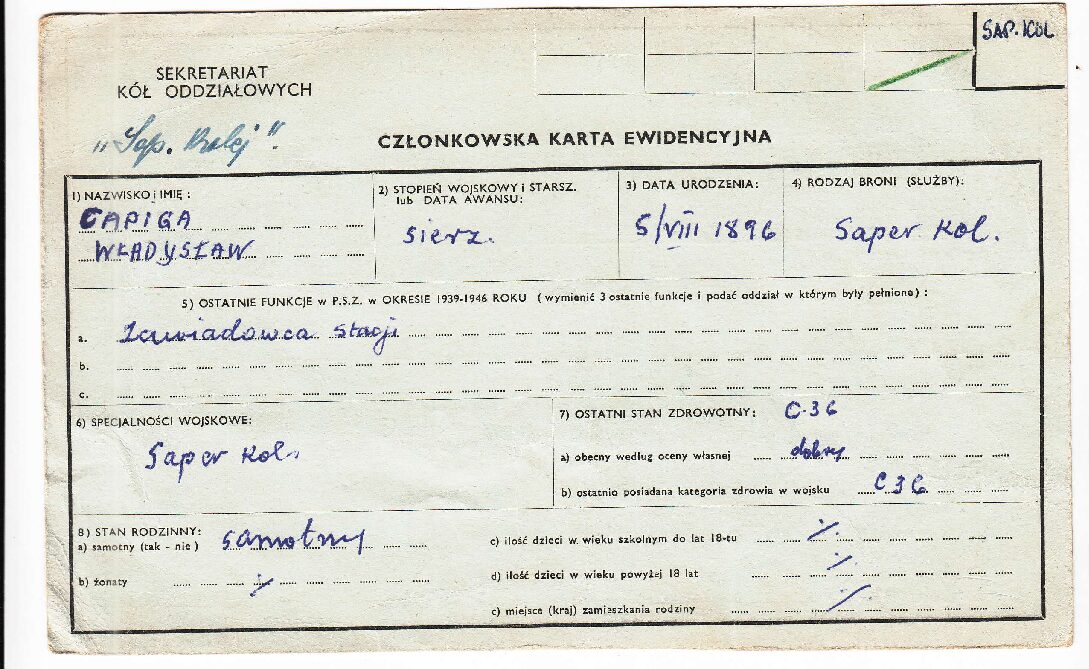 SAP. KOL
SEKRETARIAT
KÓŁ ODDZIAŁOWYCH
"Sap. Kolej".
CZŁONKOWSKA KARTA EWIDENCYJNA
1) NAZWISKO i IMIĘ :
CAPIGA
WŁADYSŁAW
2) STOPIEŃ WOJSKOWY i STARSZ.
lub DATA AWANSU:
sierz.
3) DATA URODZENIA:
5/VIII 1896
4) RODZAJ BRONI (SŁUŻBY):
Saper Kol.
5) OSTATNIE FUNKCJE w P.S.Z. w OKRESIE 1939-1946 ROKU (wymienić 3 ostatnie funkcje i podać oddział w którym były pełnione) :
a. Zawiadowca stacji
b.
c.
6) SPECJALNOŚCI WOJSKOWE:
Saper Kol.
7) OSTATNI STAN ZDROWOTNY: C-36
a) obecny według oceny własnej dobry
b) ostatnio posiadana kategoria zdrowia w wojsku C 36
8) STAN RODZINNY:
a) samotny (tak - nie) samotny
b) żonaty ·/.
c) ilość dzieci w wieku szkolnym do lat 18-tu ·/.
d) ilość dzieci w wieku powyżej 18 lat ·/.
c) miejsce (kraj) zamieszkania rodziny ·/.